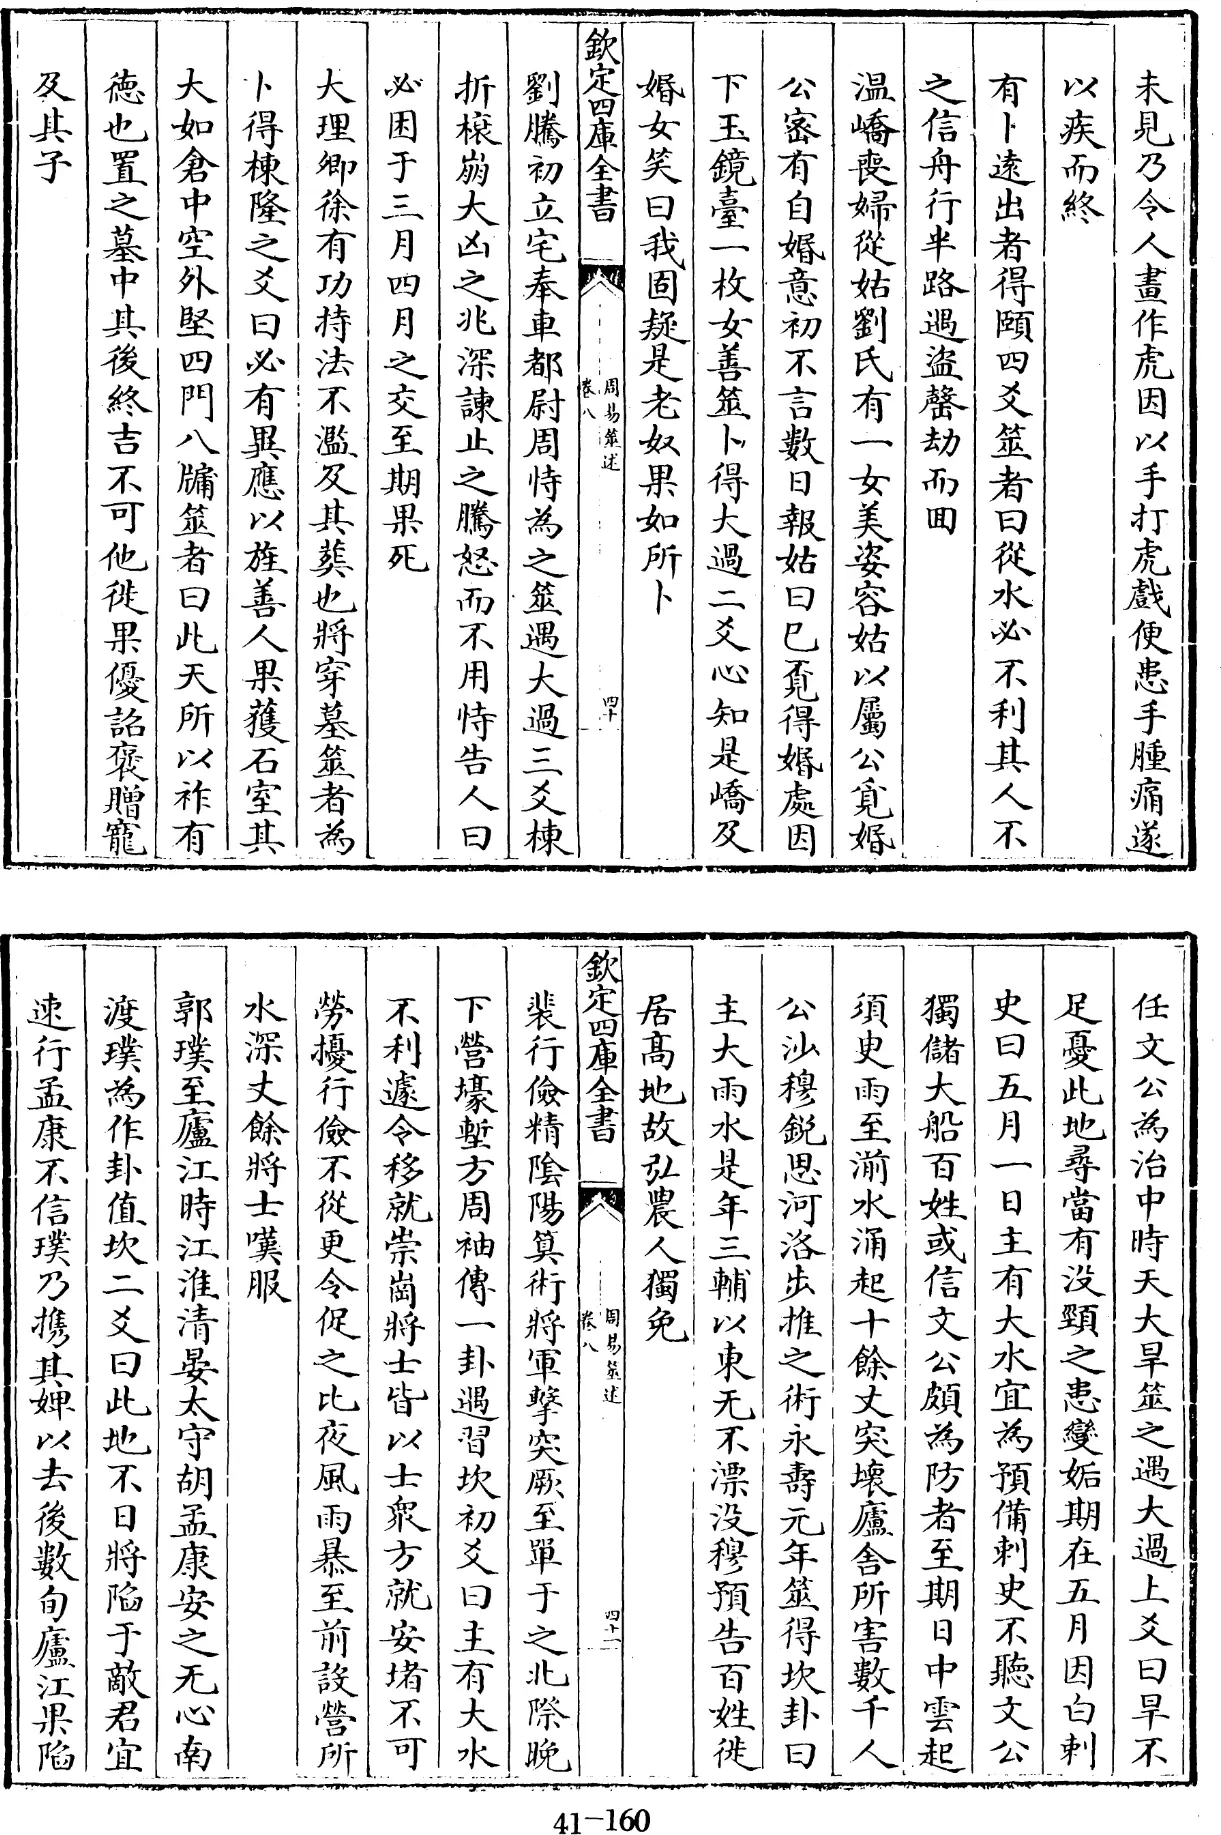 未見乃令人畫作虎因以手打虎戲便患手腫痛遂
以疾而終
有卜遠出者得頤四爻筮者曰從水必不利其人不
之信舟行半路遇盜罄劫而囬
温嶠喪婦從姑劉氏有一女美姿容姑以屬公覓婚
公宻有自婚意初不言數日報姑曰已覓得婚處因
下玉鏡臺一枚女善筮卜得大過二爻心知是嶠及
婚女笑曰我固疑是老奴果如所卜
欽定四庫全書
周易筮述
卷八
四十
劉騰初立宅奉車都尉周恃為之筮遇大過三爻棟
折榱崩大凶之兆深諫止之騰怒而不用恃告人曰
必困于三月四月之交至期果死
大理卿徐有功持法不濫及其葬也將穿墓筮者為
卜得棟隆之爻曰必有異應以旌善人果獲石室其
大如倉中空外堅四門八牖筮者曰此天所以祚有
徳也置之墓中其後終吉不可他徙果優詔褒贈寵
及其子
任文公為治中時天大旱筮之遇大過上爻曰旱不
足憂此地尋當有没頸之患變姤期在五月因白刺
史曰五月一日主有大水宜為預備刺史不聽文公
獨儲大船百姓或信文公頗為防者至期日中雲起
須臾雨至湔水涌起十餘丈突壞廬舍所害數千人
公沙穆鋭思河洛出推之術永壽元年筮得坎卦曰
主大雨水是年三輔以東无不漂没穆預告百姓徙
居髙地故弘農人獨免
欽定四庫全書
周易筮述
卷八
四十一
裴行儉精隂陽算術將軍擊突厥至單于之北際晚
下營壕塹方周袖傳一卦遇習坎初爻曰主有大水
不利遽令移就崇崗將士皆以士衆方就安堵不可
勞擾行儉不從更令促之比夜風雨暴至前設營所
水深丈餘將士嘆服
郭璞至廬江時江淮清晏太守胡孟康安之无心南
渡璞為作卦值坎二爻曰此地不日將陷于敵君宜
速行孟康不信璞乃携其婢以去後數旬廬江果陷
41-160